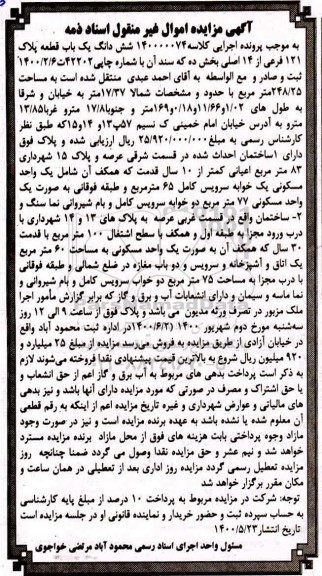 آگهی مزایده اموال غیر منقول اسناد ذمه
به موجب پرونده اجرایی کلاسه ۱۴۰۰۰۰۰۷۴ شش دانگ یک باب قطعه پلاک
۱۲۱ فرعی از ۱۴ اصلی بخش ده که سند آن با شماره چاپی ۴۲۲۰۲ت۱۴۰۰/۲/۶
ثبت و صادر و مع الواسطه به آقای احمد عبدی منتقل شده است به مساحت
۲۴۸/۲۵متر مربع با حدود و مشخصات شمالا ۱۷/۳۷متر به خیابان و شرقا
به طول های ۱/۰۲و۱۱/۶۶و۰/۱۸و۱/۶۹متر و جنوبا ۱۷/۸ مترو غربا ۱۳/۸۵
مترو به آدرس خیابان امام خمینی ک نسیم ۵۷پ۱۳و ۱۴و۱۵که طبق نظر
کارشناس رسمی به مبلغ۲۵/۹۲۰/۰۰۰/۰۰۰ ریال ارزیابی شده و پلاک فوق
دارای ۱ساختمان احداث شده در قسمت شرقی عرصه و پلاک ۱۵ شهرداری
۸۳ متر مربع اعیانی کمتر از ۱۰ سال قدمت که همکف آن شامل یک واحد
مسکونی یک خوابه سرویس کامل ۶۵ مترمربع و طبقه فوقانی به صورت یک
واحد مسکونی ۷۷ متر مربع دو خوابه سرویس کامل و بام شیروانی نما سنگ و
۲- ساختمان واقع در قسمت غربی عرصه به پلاک های ۱۳ و ۱۴ شهرداری با
درب ورود مجزا به طبقه اول و همکف با سطح اشتغال ۱۰۰ متر مربع با قدمت
۳۰ سال که همکف آن به صورت یک واحد مسکونی به مساحت ۶۰ متر مربع
یک اتاق و آشپزخانه و سرویس و دو باب مغازه در ضلع شمالی و طبقه فوقانی
با درب مجزا به مساحت ۷۵ متر مربع دو خواب سرویس کامل و بام شیروانی و
نما ماسه و سیمان و دارای انشعابات آب و برق و گاز که برابر گزارش مأمور اجرا
ملک مزبور در تصرف ورثه مدیون می باشد و پلاک فوق از ساعت ۹ الی ۱۲ روز
سه‌شنبه مورخ دوم شهریور ۱۴۰۰ (۱۴۰۰/۶/۲) در اداره ثبت محمودآباد واقع
در خیابان آزادی از طریق مزایده به فروش می‌رسد مزایده از مبلغ ۲۵ میلیارد و
۹۲۰ میلیون ریال شروع به بالاترین قیمت پیشنهادی نقدا فروخته می‌شوند لازم
به ذکر است پرداخت بدهی های مربوط به آب برق و گاز اعم از حق انشعاب و
یا حق اشتراک و مصرف در صورتی که مورد مزایده دارای آنها باشد و نیز بدهی
های مالیاتی و عوارض شهرداری و غیره تاریخ مزایده اعم از اینکه به رقم قطعی
آن معلوم شده یا نشده باشد به عهده برنده مزایده است و نیز در صورت وجود
مازاد وجوه پرداختی بابت هزینه های فوق از محل مازاد برنده مزایده مسترد
خواهد شد و نیم عشر و حق مزایده نقدا وصول می گردد ضمنا چنانچه روز
مزایده تعطیل رسمی گردد مزایده روز اداری بعد از تعطیلی در همان ساعت و
مکان مقرر برگزار خواهد شد
توجه: شرکت در مزایده مربوط به پرداخت ۱۰ درصد از مبلغ پایه کارشناسی
به حساب سپرده ثبت و حضور خریدار و نماینده قانونی او در جلسه مزایده است
تاریخ انتشار۱۴۰۰/۵/۲۳
مسئول واحد اجرای اسناد رسمی محمود آباد مرتضی خواجوی